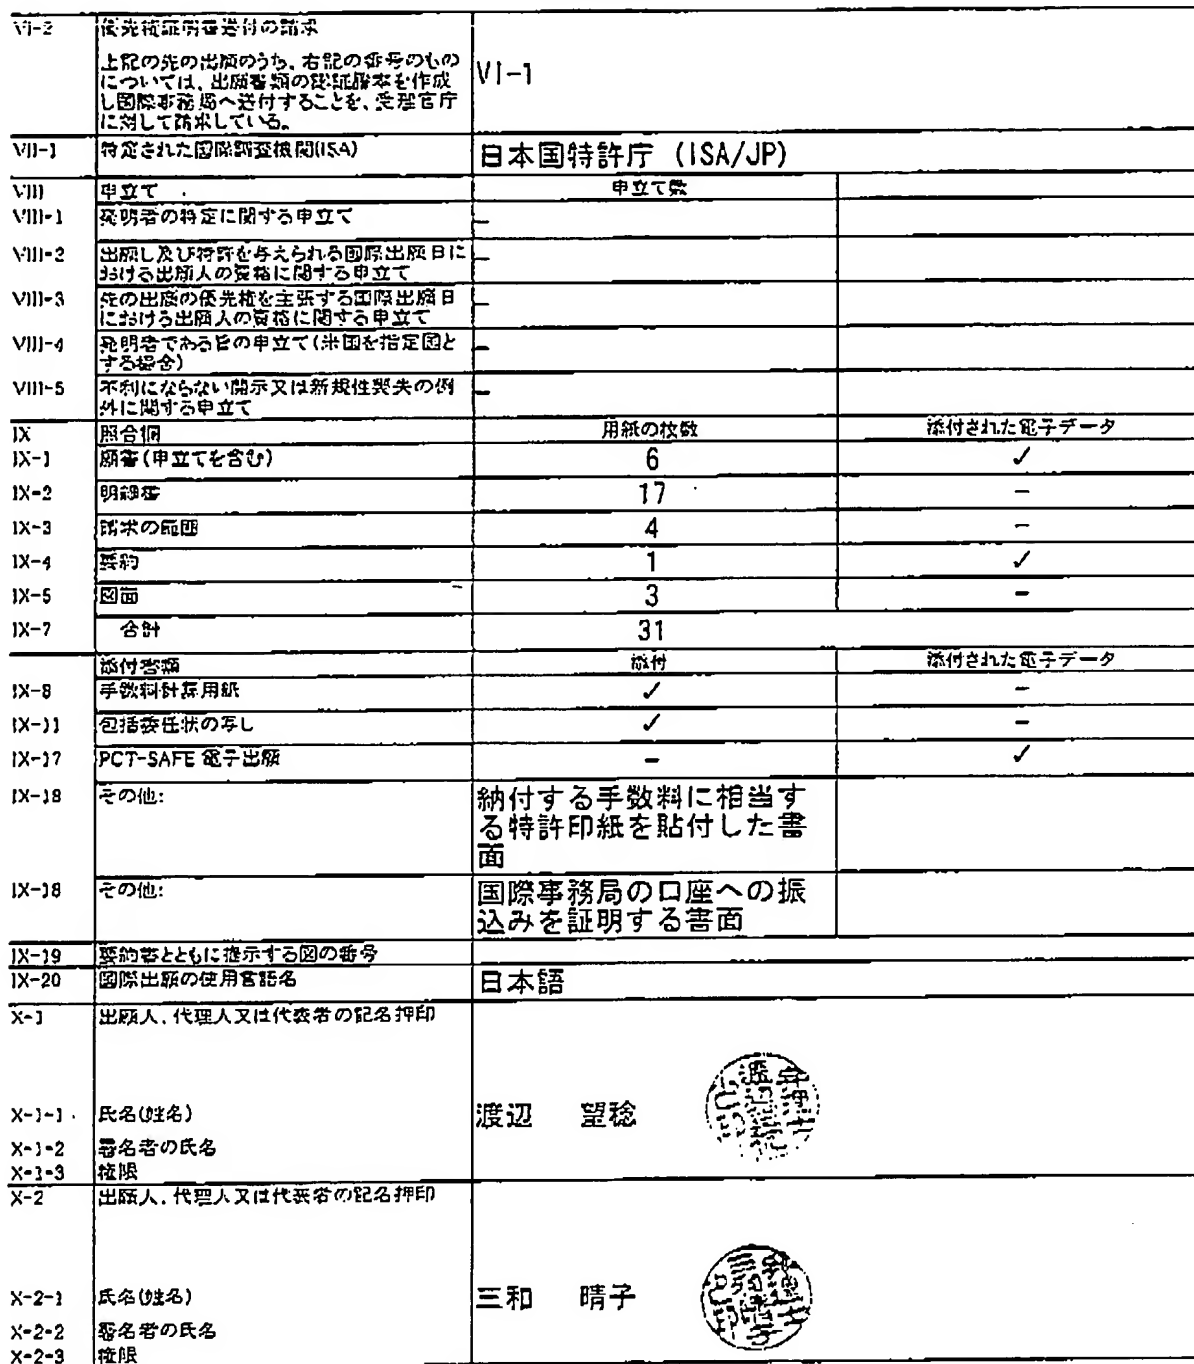 VI-2 優先権証明書送付の請求
上記の先の出願のうち、右記の番号のもの
については、出願書類の認証謄本を作成
し国際事務局へ送付することを、受理官庁
に対して請求している。
VI-1
VII-1 特定された国際調査機関(ISA) 日本国特許庁 (ISA/JP)
VIII 申立て 申立て数
VIII-1 発明者の特定に関する申立て -
VIII-2 出願し及び特許を与えられる国際出願日に -
おける出願人の資格に関する申立て
VIII-3 先の出願の優先権を主張する国際出願日 -
における出願人の資格に関する申立て
VIII-4 発明者である旨の申立て(米国を指定国と -
する場合)
VIII-5 不利にならない開示又は新規性喪失の例 -
外に関する申立て
IX 照合欄 用紙の枚数 添付された電子データ
IX-1 願書(申立てを含む) 6 ✓
IX-2 明細書 17 -
IX-3 請求の範囲 4 -
IX-4 要約 1 ✓
IX-5 図面 3 -
IX-7 合計 31
添付書類 添付 添付された電子データ
IX-8 手数料計算用紙 ✓ -
IX-11 包括委任状の写し ✓ -
IX-17 PCT-SAFE 電子出願 - ✓
IX-18 その他: 納付する手数料に相当す
る特許印紙を貼付した書
面
IX-18 その他: 国際事務局の口座への振
込みを証明する書面
IX-19 要約書とともに提示する図の番号
IX-20 国際出願の使用言語名 日本語
X-1 出願人、代理人又は代表者の記名押印
X-1-1 氏名(姓名) 渡辺 望稔
X-1-2 署名者の氏名
X-1-3 権限
X-2 出願人、代理人又は代表者の記名押印
X-2-1 氏名(姓名) 三和 晴子
X-2-2 署名者の氏名
X-2-3 権限